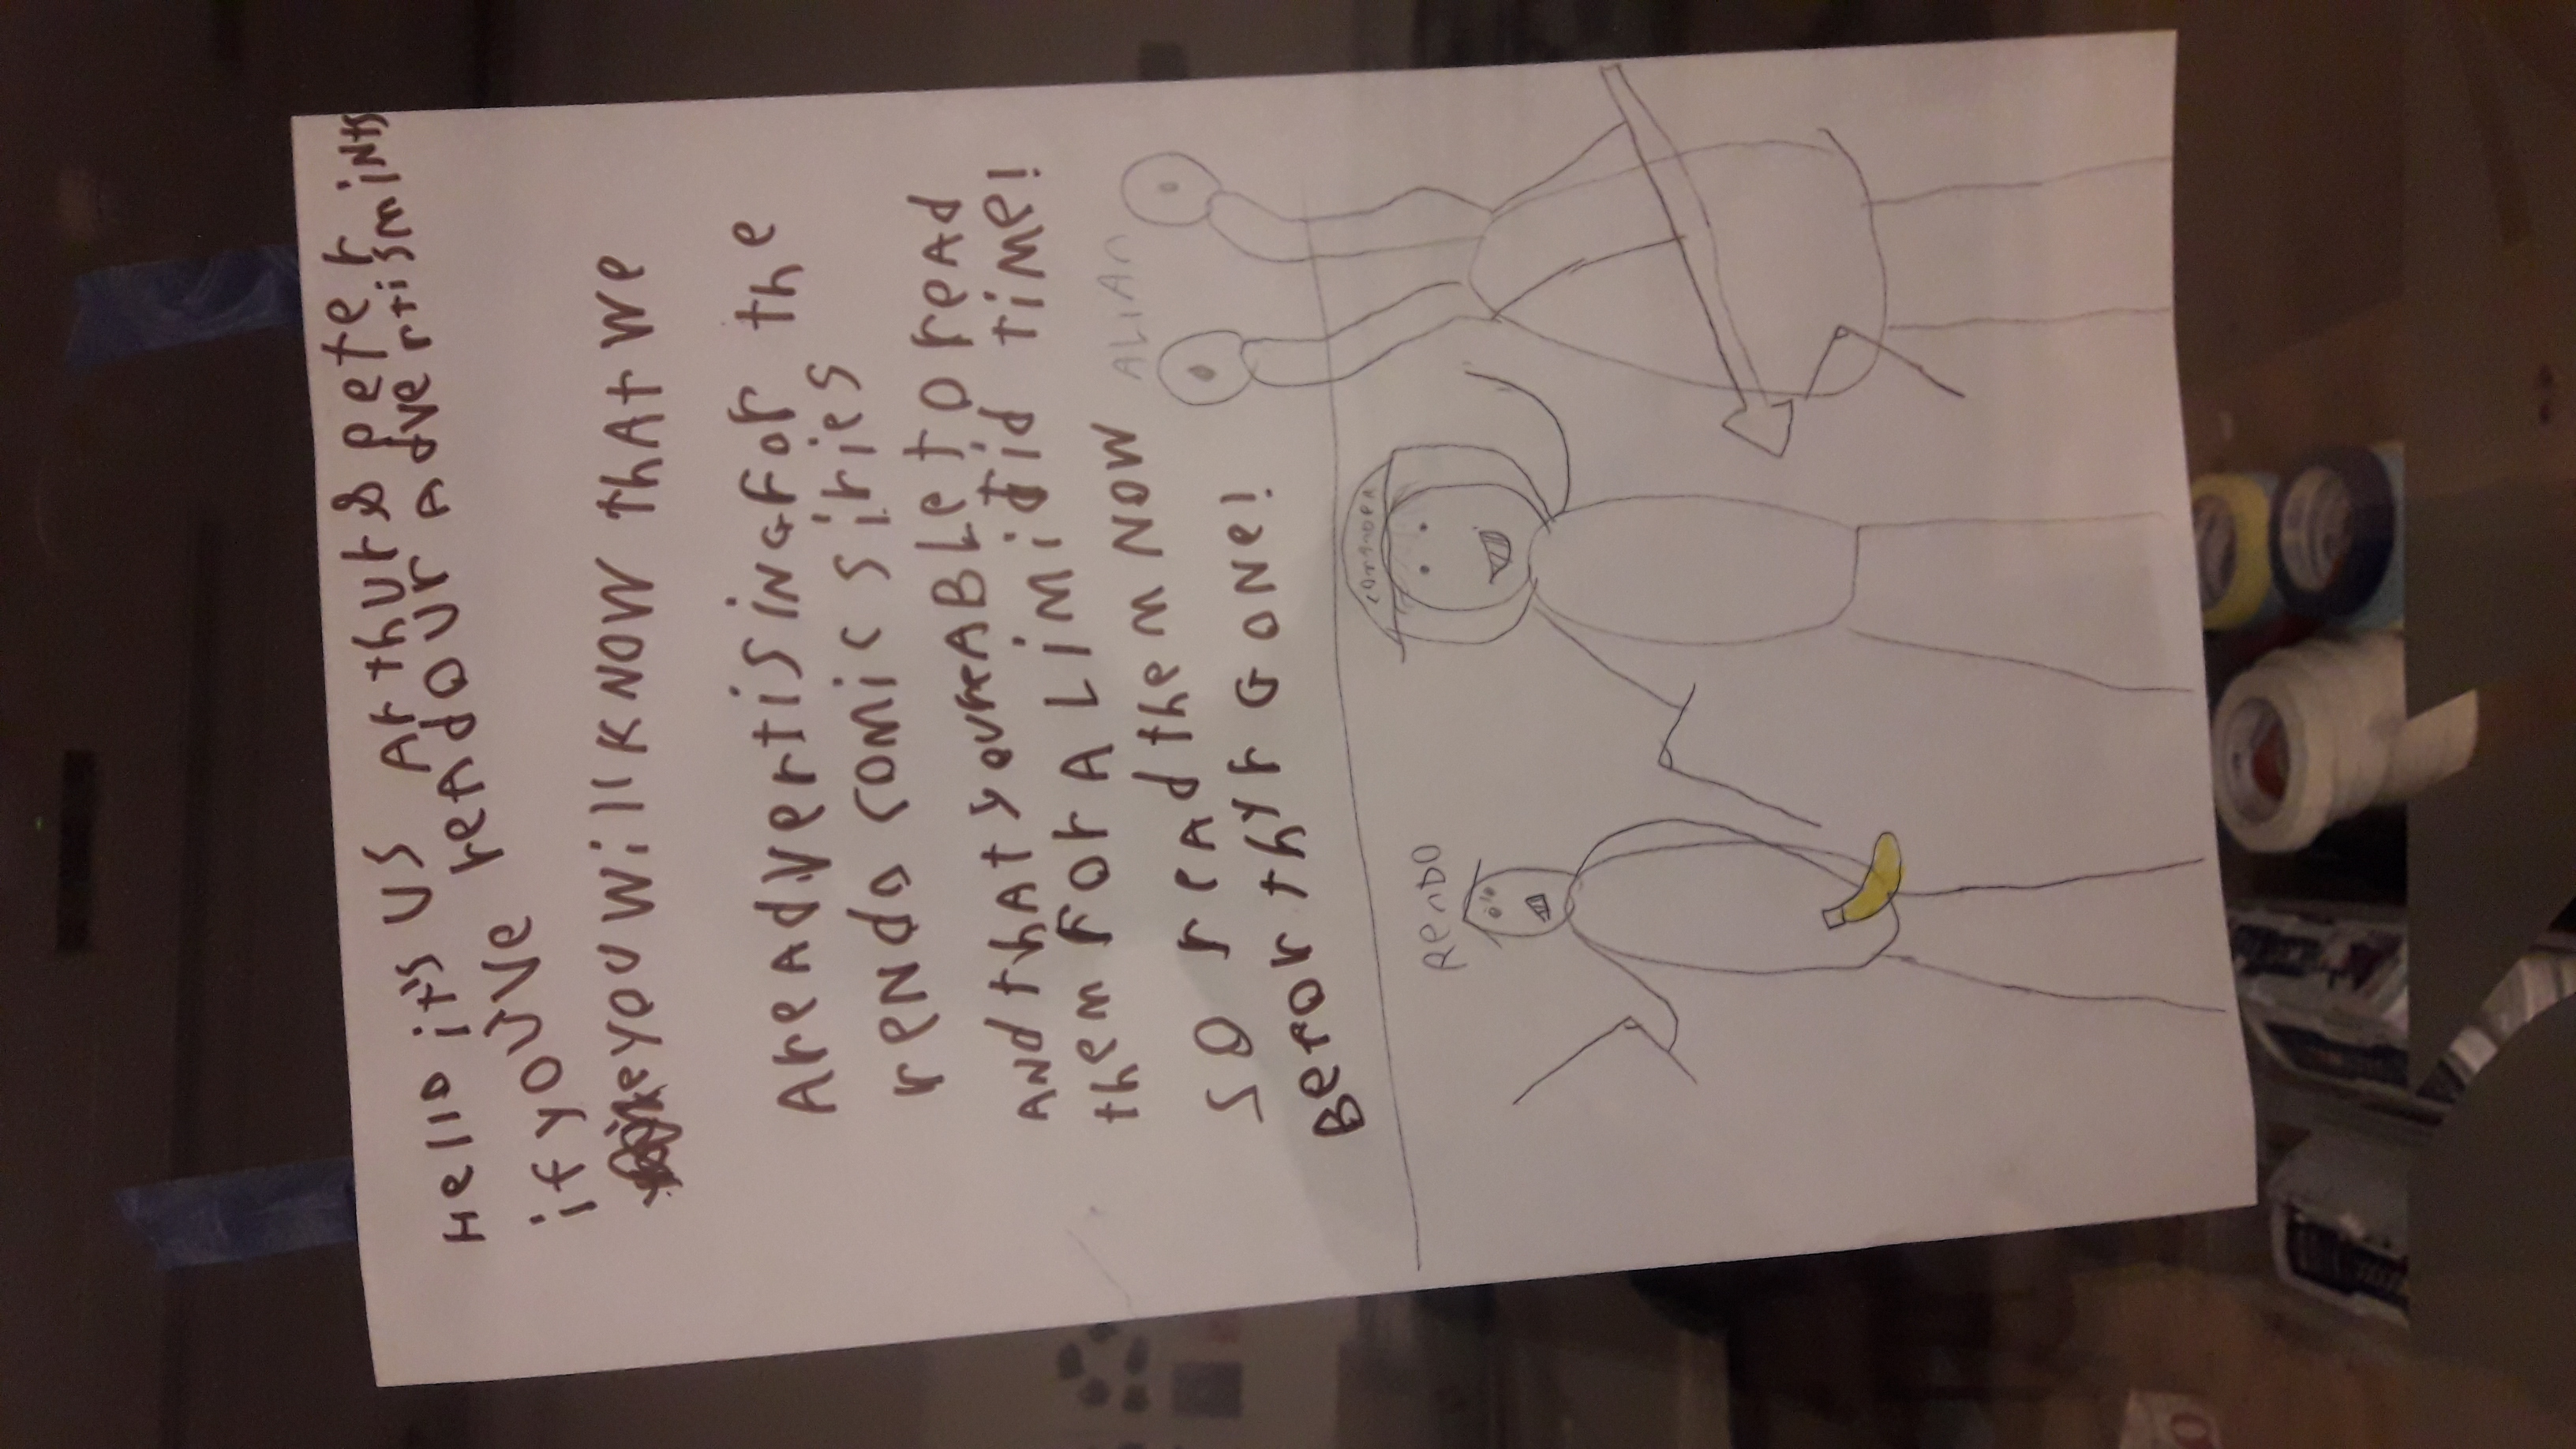 Hello it's us Arthur & peter
if you've read our Advertismints
you will know that we
Are advertising for the
rendo comic siries
And that your ABLe to read
them For A Limidid time!
so read them now
Befor thyr gone!
ALIAN
Rendo